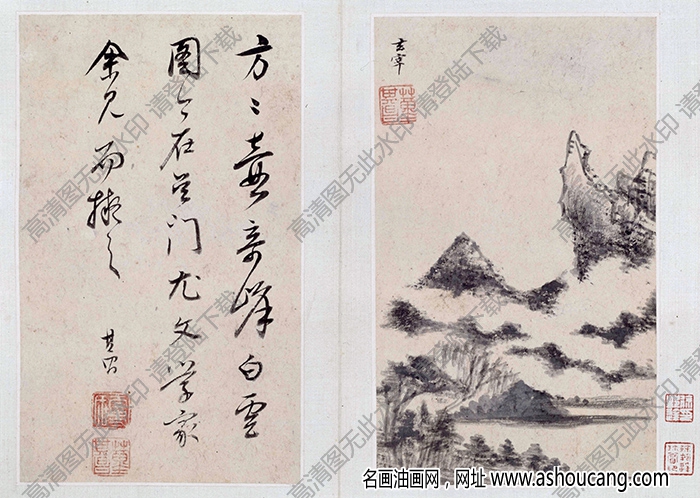 方〻壺奇峰白雲
圖今在吳門尤文學家
余見而擬之
其昌
玄宰
高清图无此水印 请登陆下载
高清图无此水印 请登陆下载
高清图无此水印 请登陆下载
高清图无此水印 请登陆下载
名画油画网，网址 www.ashoucang.com